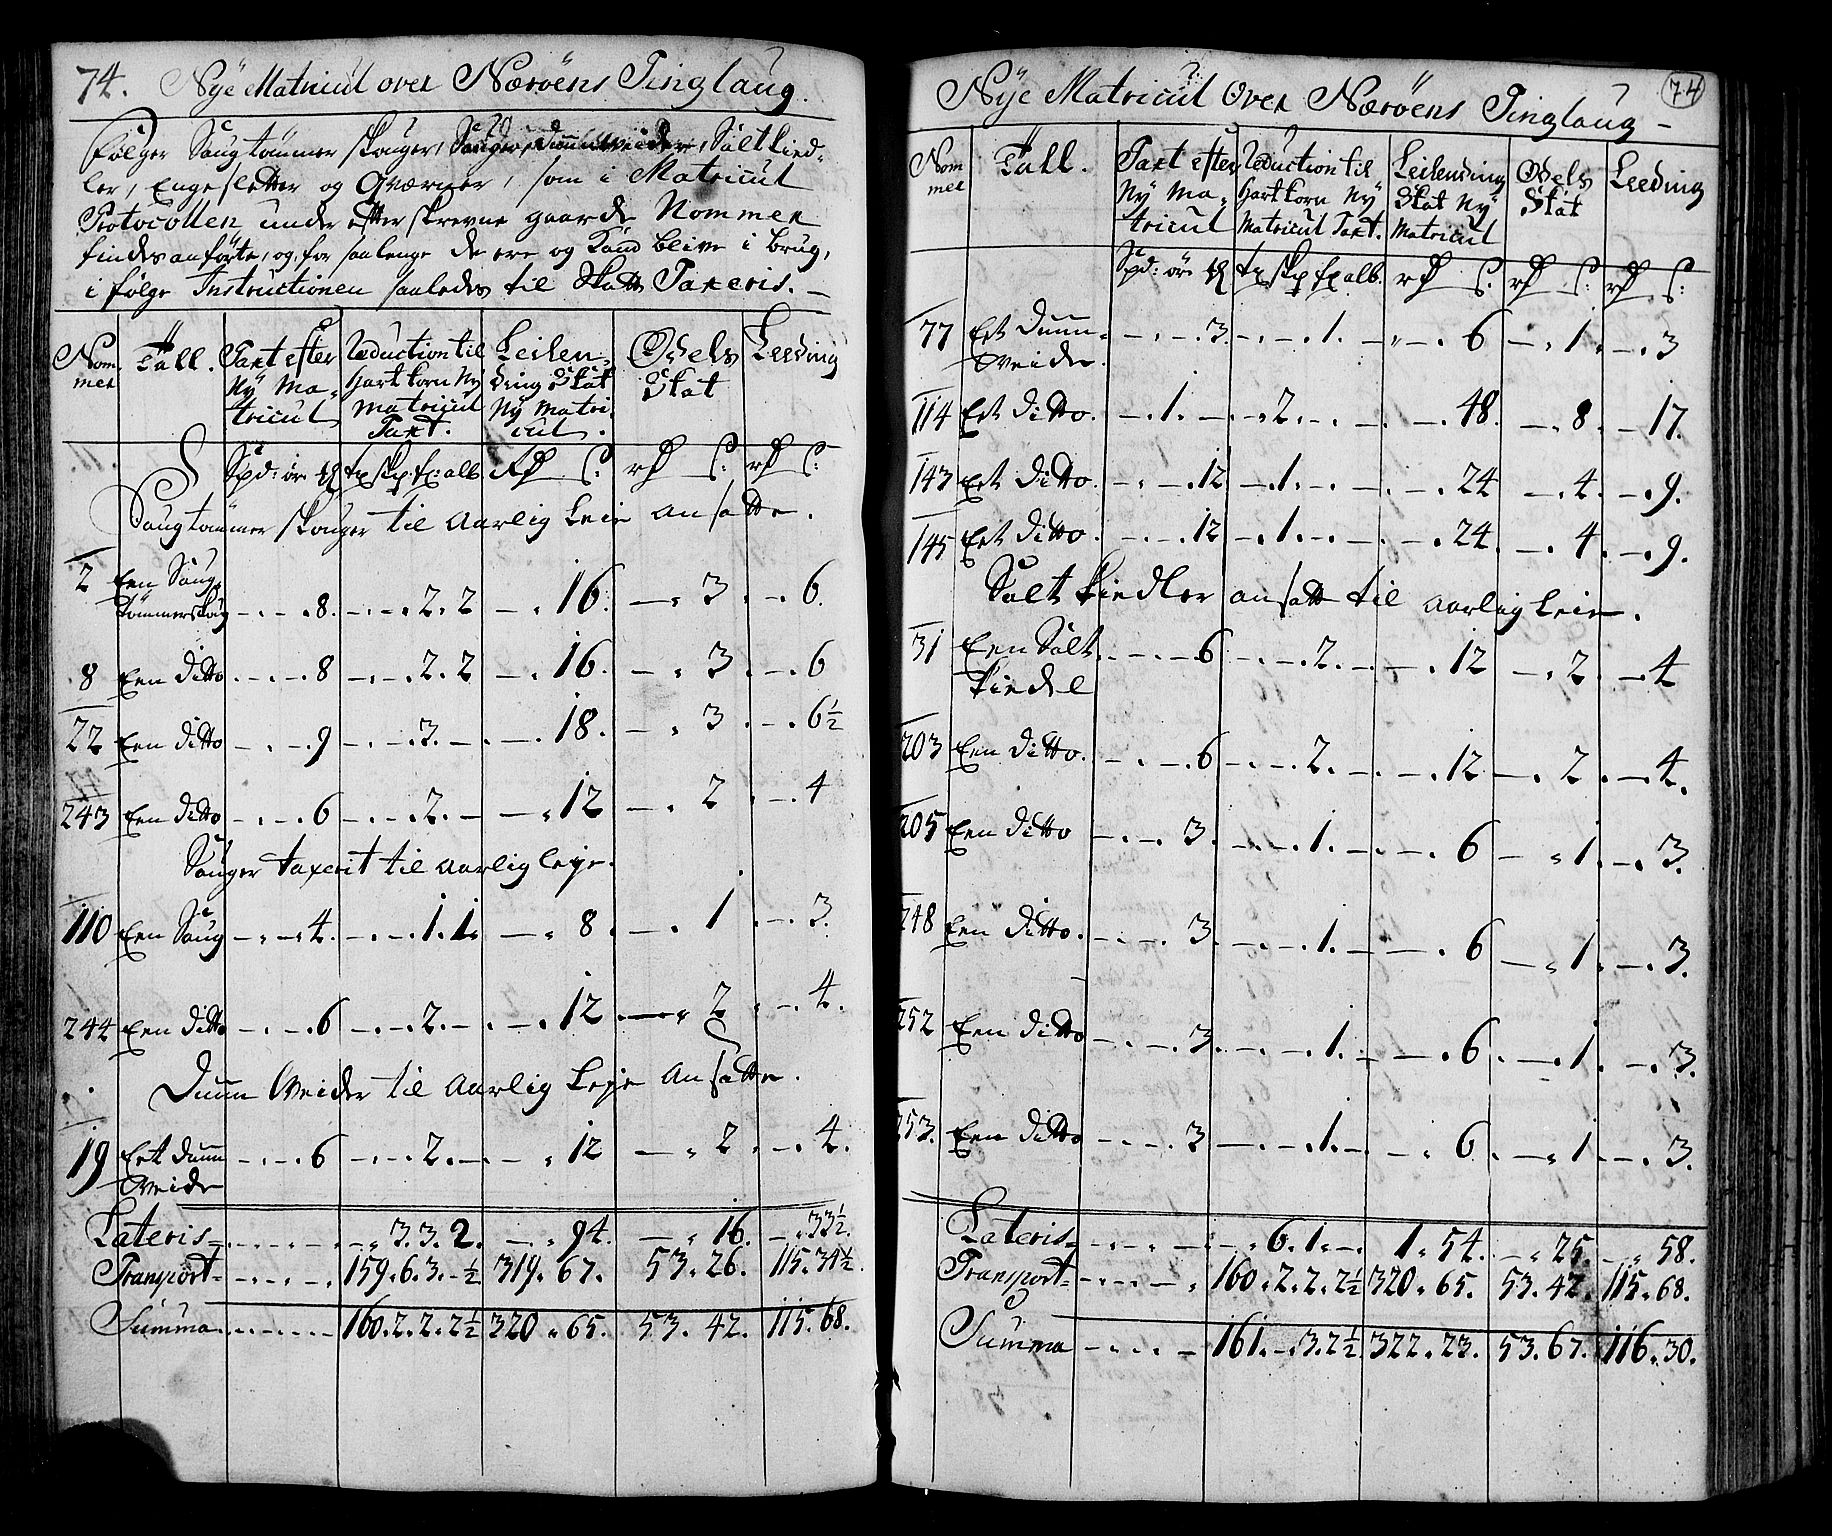 74. Nye Matricul over Næröens Tinglaug.
Følger Saugtömmer skouger, Sauger, Duun Weider, Salt Kied-
ler, Engesletter og Qværner, som i Matricul
Protocollen under efterskrevne gaarde Nommer
findes anførte, og, for saalenge de ere og Kand blive i brug,
i følge Instructionen saaledes til Skatt Taxeris. —
Nom mer Tall. Taxt efter Ny Ma- tricul Reduction til Hartkorn Ny Matricul Taxt. Leilen- ding Skat Ny Matri- cul. Odels Skat Leeding
Spd: ør
Saugtömmer skouger til Aarlig Leie Ansatte.
2 Een Saug- tömmerskoug — . — . 8. — . — . 2. 2 — . 16. — . 3. — . 6.
8 Een ditto . — . — . 8 — . — . 2. 2 — . 16. — . 3. — . 6
22 Een ditto — . — . 9 — . — . 3. — . — . 18. — . 3. — . 6½
243 Een ditto — . — . 6 — . — . 2. — — . 12 — . 2. — . 4
Sauger taxerit til Aarlig Leje.
110 Een Saug — . — 4. — . — . 1. 1. — . 8 — . 1. — . 3.
244 Een ditto — . — . 6 — . — . 2. — . — . 12 — . 2. — . 4.
Duun Weider til Aarlig Leje Ansatte.
19 Ett Duun Weide — . — . 6 — . — . 2. — . — . 12 — . 2. — . 4.
Lateris 3. 3. 2. — . 94. — . 16. — . 33½.
Transport 159. 6. 3. ½ 319. 67. 53. 26. 115. 34½.
Summa 160. 2. 2. 2½ 320. 65. 53. 42. 115. 68.
Nye Matricul Over Næröens Tinglaug — 74
Nom mer Tall. Taxt efter Ny Ma- tricul Reduction til Hartkorn Ny Matricul Taxt. Leilending Skat Ny Matricul Odels Skat Leeding
Spd: ør
77 Ett Duun- Weide. — . — . 3. — . — . 1. — . 6 — . 1. — . 3
114 Ett ditto. — . 1. — — . 2. — . — . 48. — . 8. — 17.
143 Ett ditto. — . — . 12. — . 1. — . — . 24 — . 4. — . 9.
145 Ett ditto. — . — . 12 — . 1. — . — . 24. — . 4. — . 9.
Salt Kiedler ansatt til Aarlig Leie.
31 Een Salt Kiedel — . — . 6 — . — . 2. — . — . 12 — . 2. — . 4
203 Een ditto. — . — . 6 — . — . 2. — . — . 12 — . 2. — . 4.
205 Een ditto — . — . 3. — . — . 1. — . — . 6 — . 1. — . 3.
248 Een ditto. — . — . 3. — . — . 1. — . — . 6 — . 1. — . 3.
252 Een ditto — . — . 3. — . — . 1. — . — . 6. — . 1. — . 3.
253. Een ditto — . — . 3 — . — . 1. — . — . 6. — . 1. — . 3.
Lateris 6. 1. — . 1. 54. — . 25. — . 58.
Transport 160. 2. 2. 2½ 320. 65. 53. 42. 115. 68.
Summa 161. — . 3. 2½. 322. 23. 53. 67. 116. 30.